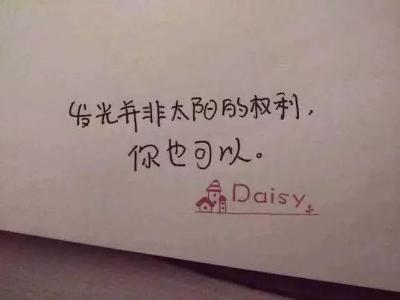 发光并非太阳的权利,
你也可以。
Daisy